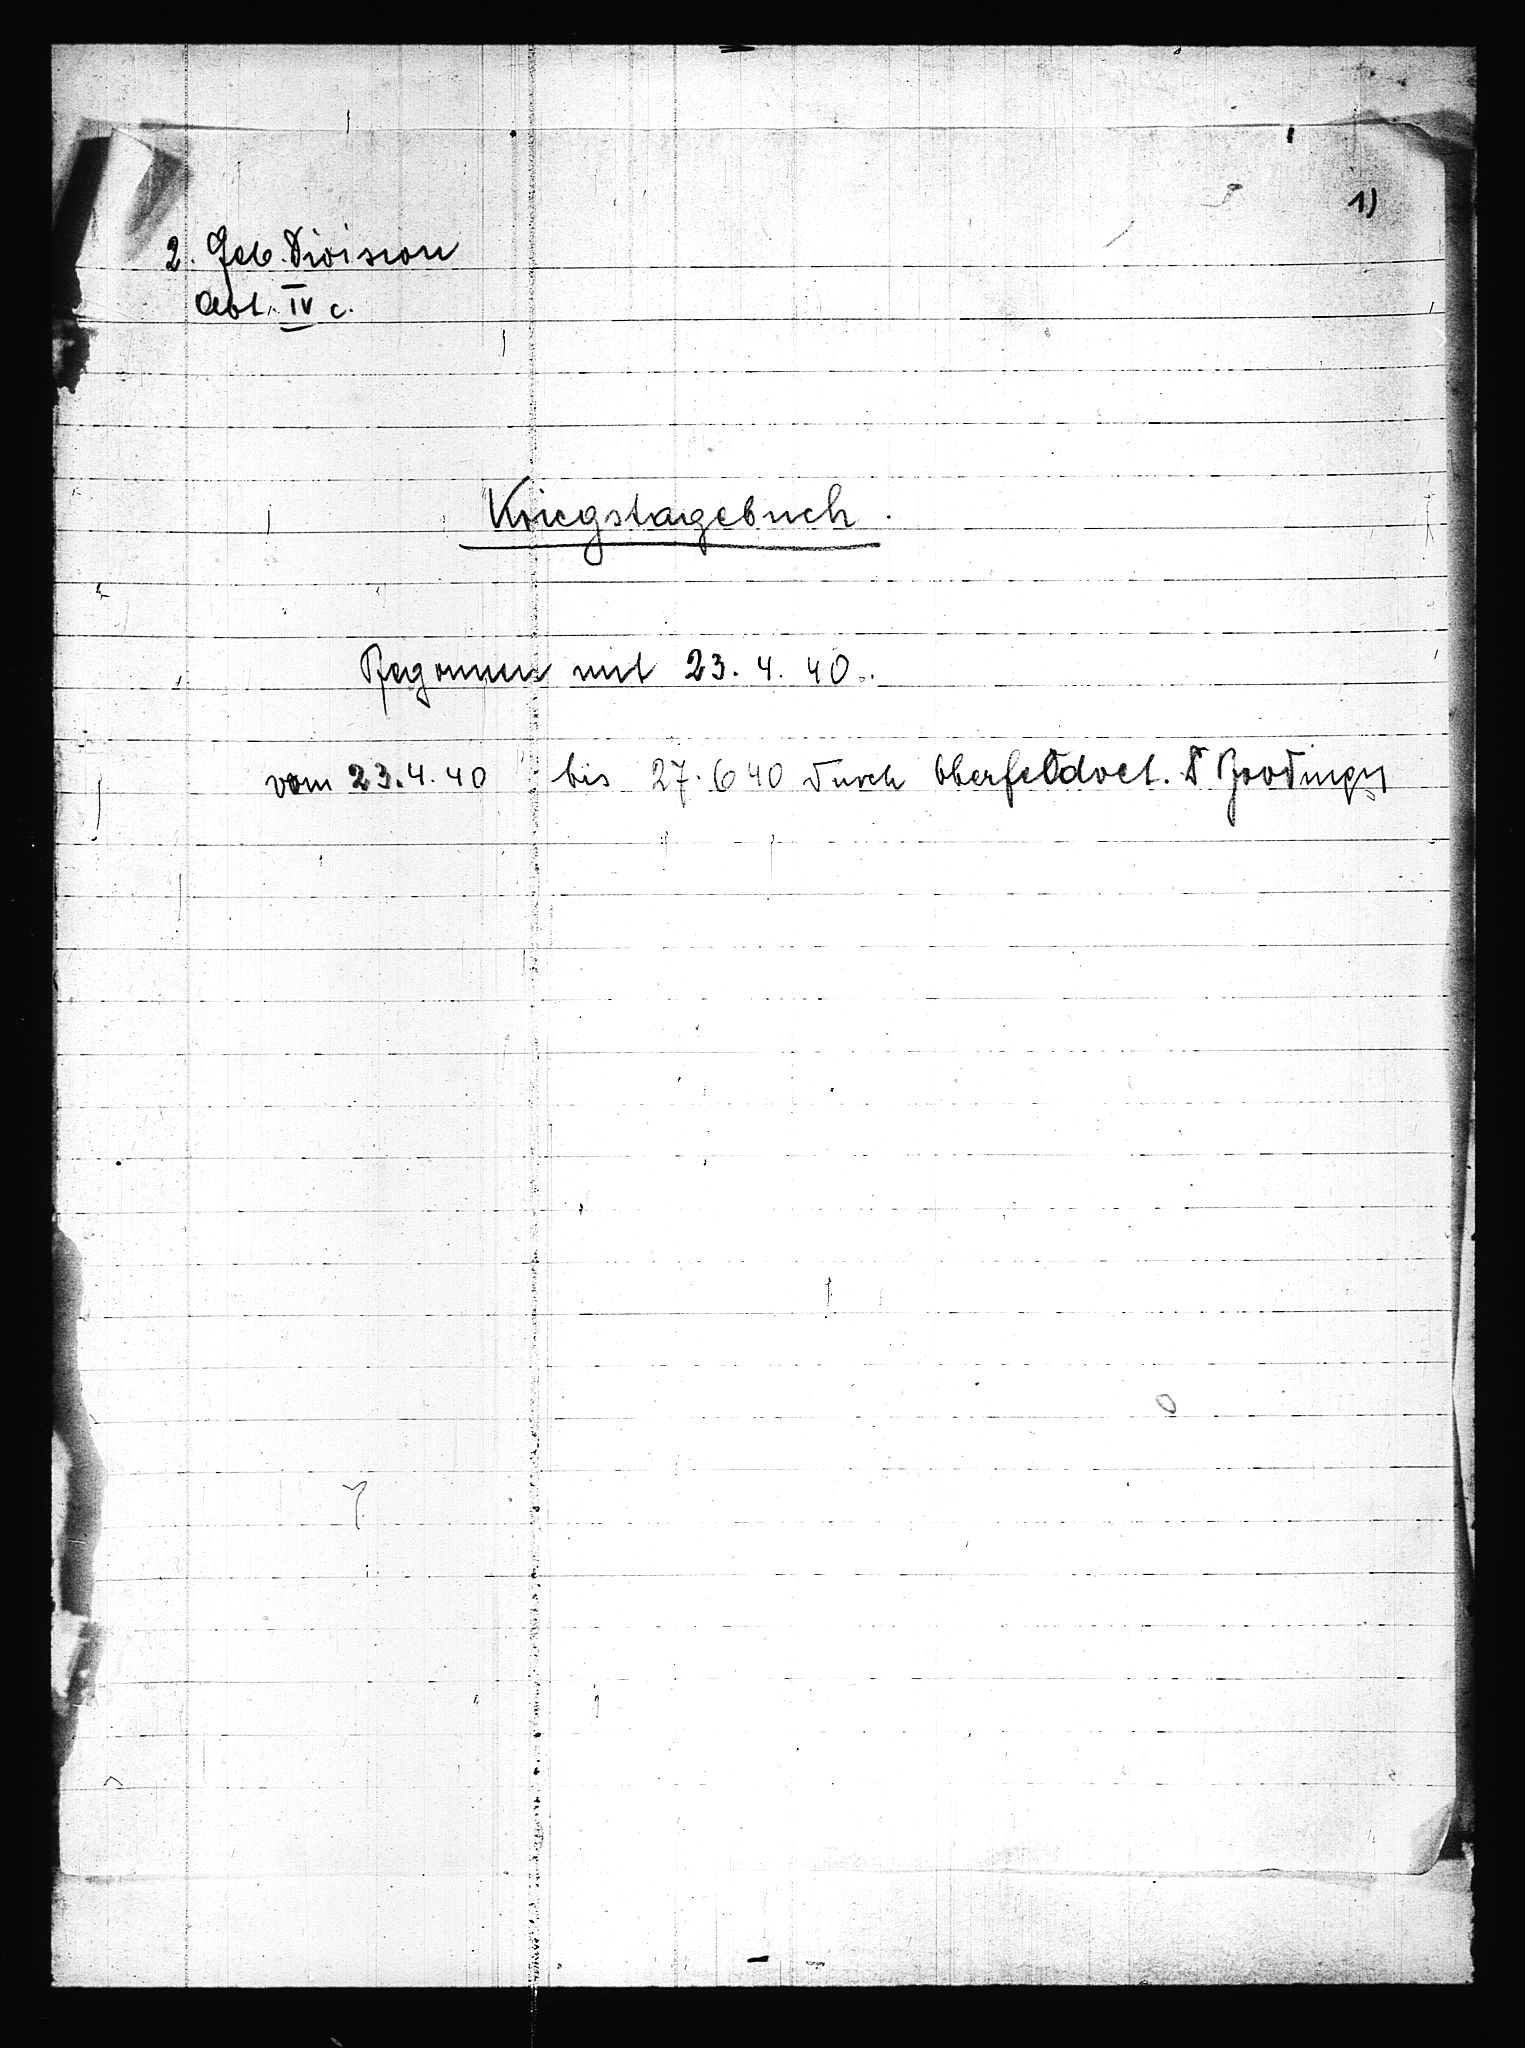 1)
2. Geb. Division
Abt. IV c.
Kriegstagebuch.
Begonnen mit 23. 4. 40.
vom 23. 4. 40 bis 27. 6 40 durch Oberfeldvet. Dr